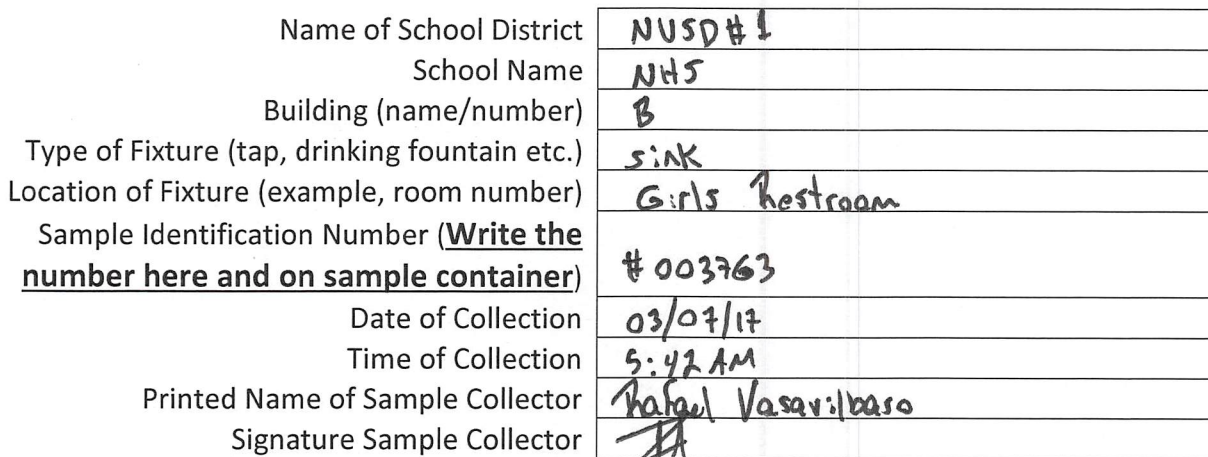 Name of School District NUSD#1
School Name NHS
Building (name/number) B
Type of Fixture (tap, drinking fountain etc.) sink
Location of Fixture (example, room number) Girls Restroom
Sample Identification Number (Write the
number here and on sample container) #003763
Date of Collection 03/07/17
Time of Collection 5:42 AM
Printed Name of Sample Collector Rafael Vasavilbaso
Signature Sample Collector